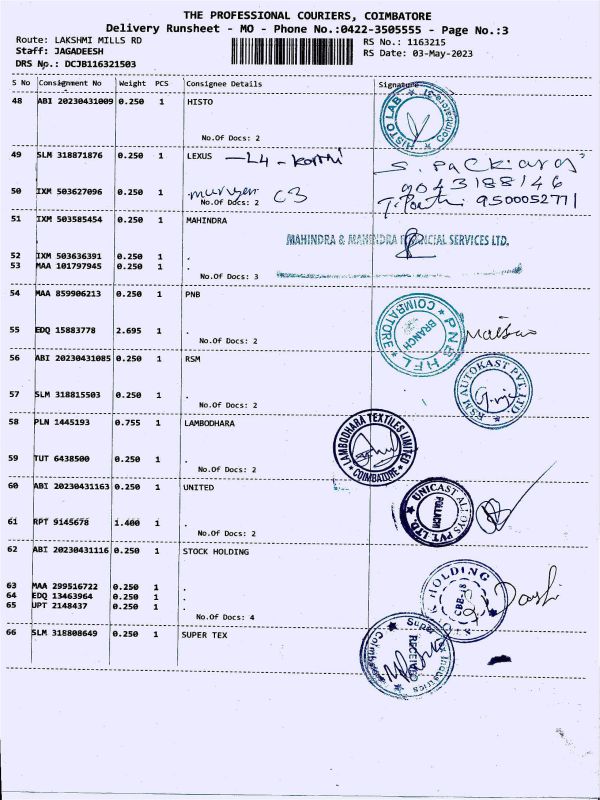 THE PROFESSIONAL COURIERS, COIMBATORE
Delivery Runsheet - MO - Phone No.:0422-3505555 - Page No.:3
Route: LAKSHMI MILLS RD
RS No.: 1163215
Staff: JAGADEESH
RS Date: 03-May-2023
DRS No.: DCJB116321503
S No Consignment No Weight PCS Consignee Details Signature
48 ABI 20230431009 0.250 1 HISTO
HISTO LAB Coimbatore
No.Of Docs: 2
49 SLM 318871876 0.250 1 LEXUS - L4 -
S. Packiaraj
9043188146
50 IXM 503627096 0.250 1 murugan C3
No.Of Docs: 2
9500052771
51 IXM 503585454 0.250 1 MAHINDRA
MAHINDRA & MAHINDRA FINANCIAL SERVICES LTD.
52 IXM 503636391 0.250 1 .
53 MAA 101797945 0.250 1 .
No.Of Docs: 3
54 MAA 859906213 0.250 1 PNB
PNB HFL COIMBATORE BRANCH
55 EDQ 15883778 2.695 1 .
No.Of Docs: 2
56 ABI 20230431085 0.250 1 RSM
RSM AUTOKAST PVT. LTD
57 SLM 318815503 0.250 1 .
No.Of Docs: 2
58 PLN 1445193 0.755 1 LAMBODHARA
LAMBODHARA TEXTILES LIMITED COIMBATORE
59 TUT 6438500 0.250 1 .
No.Of Docs: 2
60 ABI 20230431163 0.250 1 UNITED
UNICAST ALLOYS PVT. LTD. POLLACHI
61 RPT 9145678 1.400 1 .
No.Of Docs: 2
62 ABI 20230431116 0.250 1 STOCK HOLDING
HOLDING
63 MAA 299516722 0.250 1 .
64 EDQ 13463964 0.250 1 .
65 UPT 2148437 0.250 1 .
No.Of Docs: 4
66 SLM 318808649 0.250 1 SUPER TEX
Super Industries Coimbatore RECEIVED